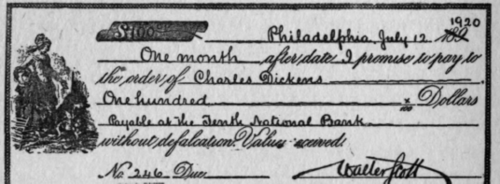 $100 Philadelphia, July 12 1920
One month after date I promise to pay to
the order of Charles Dickens
One hundred Dollars
Payable at the Tenth National Bank
without defalcation. Value received.
No. 246 Due Walter Scott